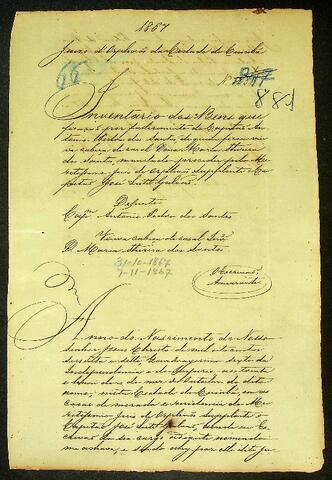 1867
Juizo d'Orphãos da Cidade de Cuiabá
66
887
881
Inventario dos Bens que
ficarão por fallecimento do Capitão An-
tonio dos Santos, de quem ficou viu-
va cabeça de casal Dona Maria Theresa
dos Santos, mandado proceder pelo Me-
ritissimo Juiz de Orphãos Supplente Ca-
pitão José Leite
Defunto
Capᵐ Antonio dos Santos
Viuva cabeça de casal
D. Maria Theresa dos Santos
31-10-1867
7-11-1867
Escrivão
Anno do Nascimento de Nosso
Senhor Jesus Christo de mil oito centos
sessenta e sette, quadragesimo sexto da
Independencia e do Imperio, aos trinta
e hum dias do mez de Outubro do dito
anno, nesta Cidade de Cuiabá, em as
casas de morada e residencia do Me-
ritissimo Juiz de Orphãos Supplente o
Capitão José Leite, aonde eu Es-
crivão de seo cargo adiante nomeado
me achava, e sendo ahi, por elle dito Ju-